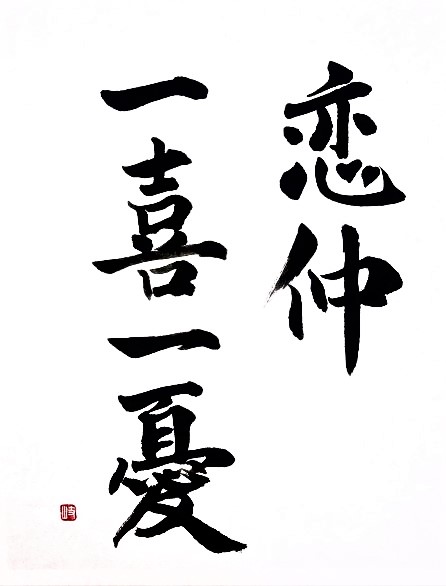 恋仲
一喜一憂